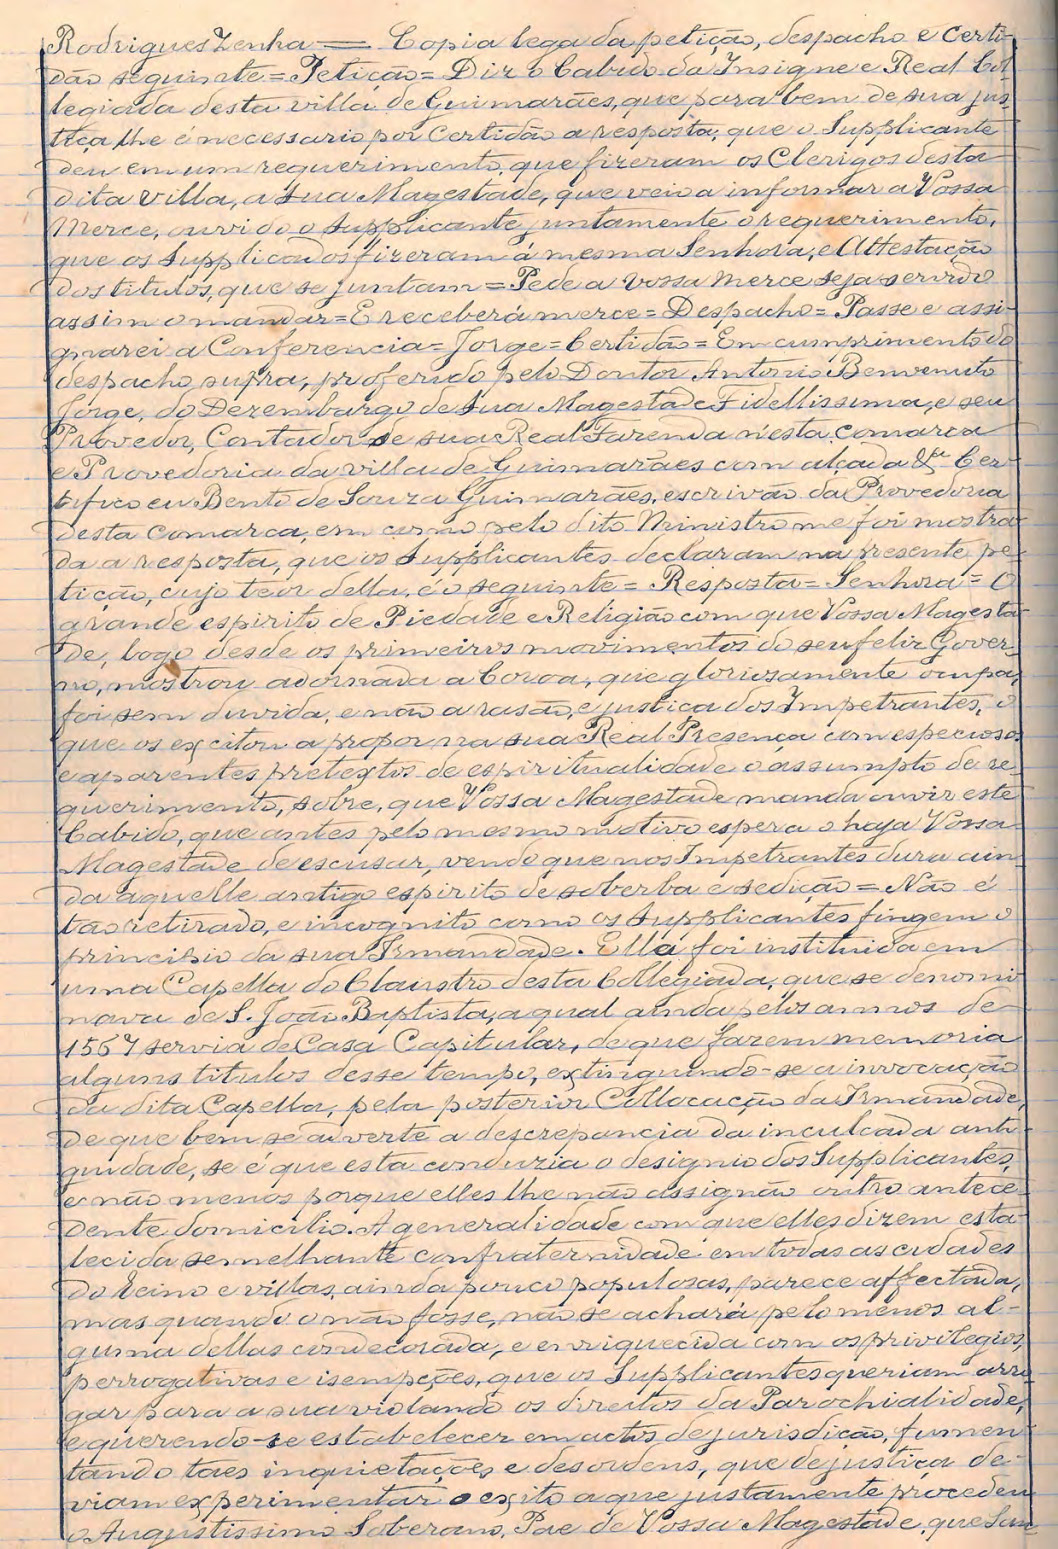 Rodrigues Zenha == Copia lega da petição, despacho e certi-
dão seguinte = Petição = Diz o Cabido da Insigne e Real Col-
legiada desta villa de Guimarães, que para bem de sua jus-
tiça, lhe é necessario por certidão a resposta, que o Supplicante
deu em um requerimento, que fizeram os Clerigos desta
dita villa, a Sua Magestade, que veio a informar a Vossa
Merce, ouvido o Supplicante, juntamente o requerimento,
que os Supplicados fizeram á mesma Senhora, e Attestação
dos titulos, que se juntam = Pede a vossa merce seja servido
assim o mandar = E receberá merce = Despacho = Passe e assi-
gnarei a Conferencia = Jorge = Certidão = Em cumprimento do
despacho supra, proferido pelo Doutor Antonio Benvenuto
Jorge, do Dezembargo de Sua Magestade Fidellissima, e seu
Provedor, Contador de sua Real Fazenda n'esta comarca
e Provedoria da villa de Guimarães com alçada &ª Cer-
tifico eu Bento de Souza Guimarães, escrivão da Provedoria
desta comarca, em como pelo dito Ministro me foi mostra-
da a resposta, que os Supplicantes declaram na presente pe-
tição, cujo teor della, é o seguinte = Resposta = Senhora = O
grande espirito de Piedade e Religião com que Vossa Magesta-
de, logo desde os primeiros movimentos do seu feliz Gover-
no, mostrou adornada a Coroa, que gloriosamente occupa,
foi sem duvida, e não a rasão, e justiça dos Impetrantes, o
que os excitou a propor na sua Real Presença com especiosos
e aparentes pretextos de espiritualidade o assumpto de re-
querimento, sobre, que Vossa Magestade manda ouvir este
Cabido, que antes pelo mesmo motivo espera o haja Vossa
Magestade de escusar, vendo que nos Impetrantes dura ain-
da aquelle antigo espirito de soberba e sedição = Não é
tão retirado, e incognito como os Supplicantes fingem o
principio da sua Irmandade. Ella foi instituida em
uma Capella do Claustro desta Collegiada, que se denomi
nava de S. João Baptista, a qual ainda pelos annos de
1557 servia de Casa Capitular, de que fazem memoria
alguns titulos desse tempo, extinguindo-se a invocação
da dita Capella, pela posterior Collocação da Irmandade,
de que bem se adverte a descrepancia da inculcada anti-
guidade, se é que esta conduzia o designio dos Supplicantes,
e não menos porque elles lhe não assignão outro antece-
dente domicilio. A generalidade com que elles dizem esta-
lecida semelhante confraternidade em todas as cidades
do Reino e villas, ainda pouco populosas, parece affectada,
mas quando o não fosse, não se achará pelo menos al-
guma dellas condecorada, e enriquecida com os privilegios,
perrogativas e isempções, que os Supplicantes queriam arro
gar para a sua violando os direitos da Parochialidade,
e querendo-se estabelecer em actos de jurisdição, fumen-
tando taes inquietações e desordens, que de justiça de-
viam experimentar o exito a que justamente procedeu
o Augustissimo Soberano, Pae de Vossa Magestade, que San-